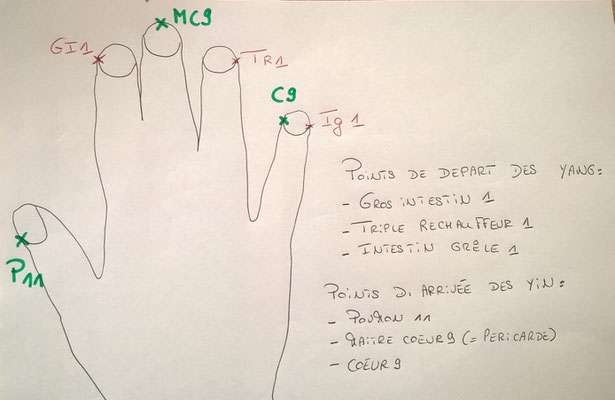 MC9
GI1
TR1
C9
Ig1
P11
POINTS DE DEPART DES YANG:
- GROS INTESTIN 1
- TRIPLE RECHAUFFEUR 1
- INTESTIN GRÊLE 1
POINTS D'ARRIVÉE DES YIN:
- POUMON 11
- MAITRE COEUR 9 (= PERICARDE)
- COEUR 9